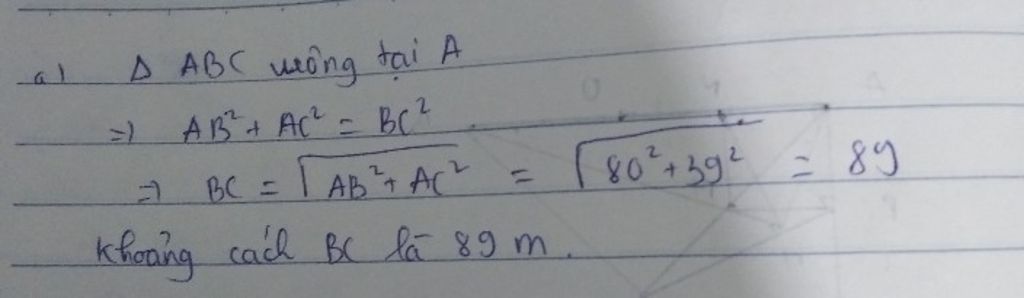 a) Δ ABC vuông tại A
=) AB² + AC² = BC²
=) BC = √AB² + AC² = √80² + 39² = 89
Khoảng cách BC là 89 m.